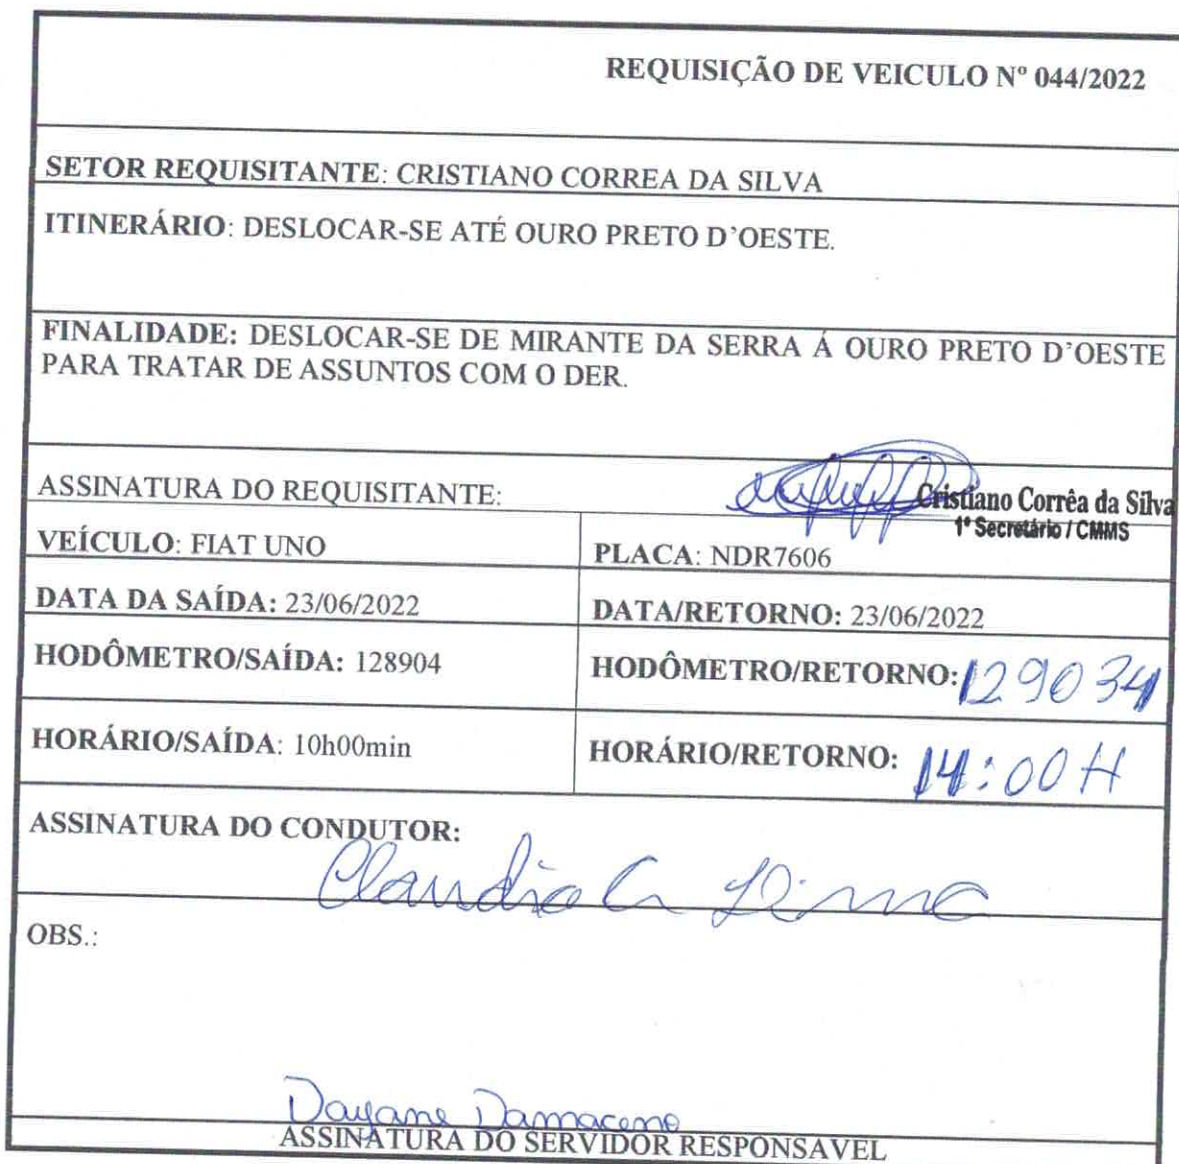 REQUISIÇÃO DE VEICULO Nº 044/2022
SETOR REQUISITANTE: CRISTIANO CORREA DA SILVA
ITINERÁRIO: DESLOCAR-SE ATÉ OURO PRETO D’OESTE.
FINALIDADE: DESLOCAR-SE DE MIRANTE DA SERRA Á OURO PRETO D’OESTE
PARA TRATAR DE ASSUNTOS COM O DER.
ASSINATURA DO REQUISITANTE:
Cristiano Corrêa da Silva
1º Secretário / CMMS
VEÍCULO: FIAT UNO
PLACA: NDR7606
DATA DA SAÍDA: 23/06/2022
DATA/RETORNO: 23/06/2022
HODÔMETRO/SAÍDA: 128904
HODÔMETRO/RETORNO: 129034
HORÁRIO/SAÍDA: 10h00min
HORÁRIO/RETORNO: 14:00 H
ASSINATURA DO CONDUTOR:
Claudio
OBS.:
Dayane Damaceno
ASSINATURA DO SERVIDOR RESPONSAVEL